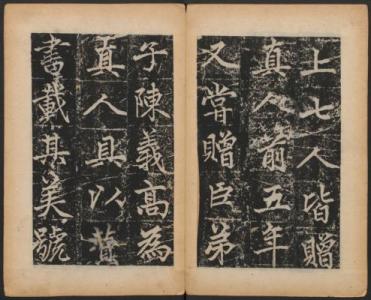 上七人皆贈
真人前五年
又嘗贈臣弟
子陳義高為
真人且以
書戴其美號